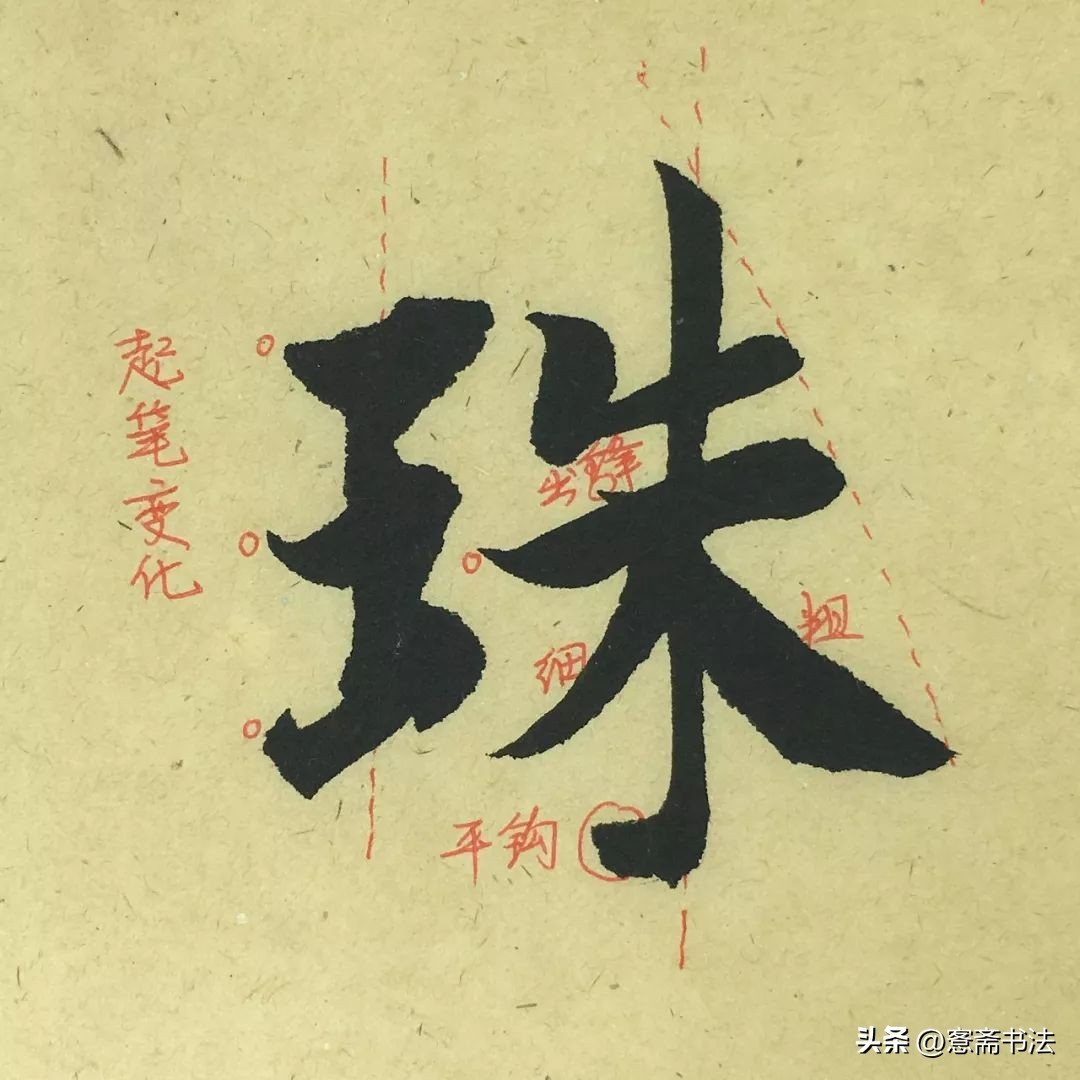 珠
起笔变化
出锋
细
粗
平钩
头条 @窓斋书法